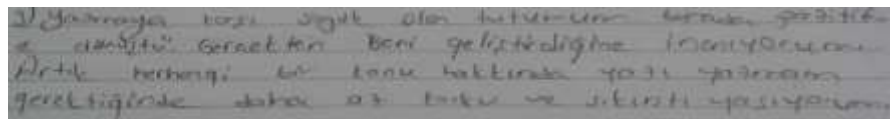 3) Yazmaya karşı soğuk olan tutumum biraz pozitif-
e dönüştü. Gerçekten beni geliştirdiğine inanıyorum.
Artık herhangi bir konu hakkında yazı yazmam
gerektiğinde daha az korku ve sıkıntı yaşıyorum